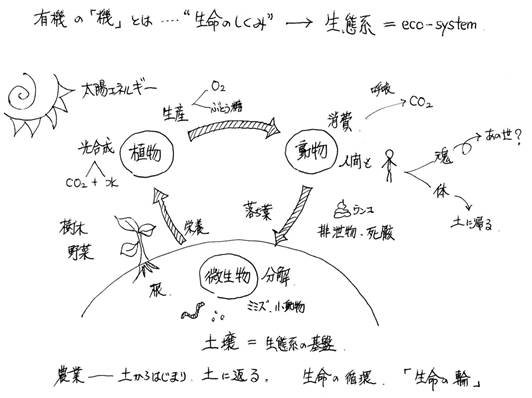 有機の「機」とは‥‥“生命のしくみ” → 生態系 = eco-system
太陽エネルギー
生産
O₂
ぶどう糖
呼吸
CO₂
消費
光合成
CO₂ + 水
植物
動物
人間も
魂
あの世？
体
土に帰る
樹木
野菜
栄養
落ち葉
ウンコ
排泄物・死骸
根
微生物
分解
ミミズ、小動物
土壌 = 生態系の基盤
農業 — 土からはじまり、土に返る。 生命の循環 「生命の輪」